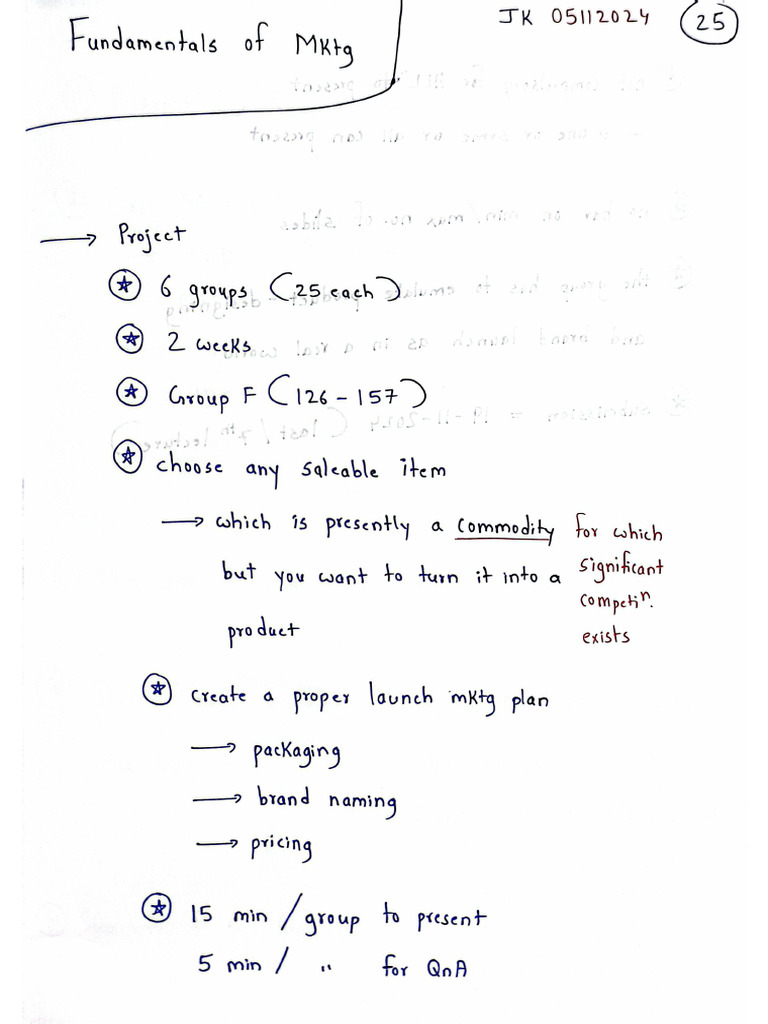 Fundamentals of Mktg
JK 05112024 25
→ Project
6 groups (25 each)
2 weeks
Group F (126 - 157)
choose any saleable item
→ which is presently a commodity for which
but you want to turn it into a significant
competiⁿ.
product exists
create a proper launch mktg plan
→ packaging
→ brand naming
→ pricing
15 min / group to present
5 min / " for QnA